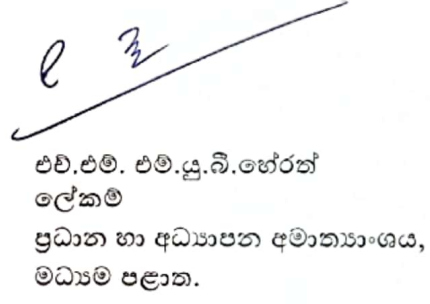 එච්.එම්. එම්.යු.බී.හේරත්
ලේකම්
ප්‍රධාන හා අධ්‍යාපන අමාත්‍යාංශය,
මධ්‍යම පළාත.